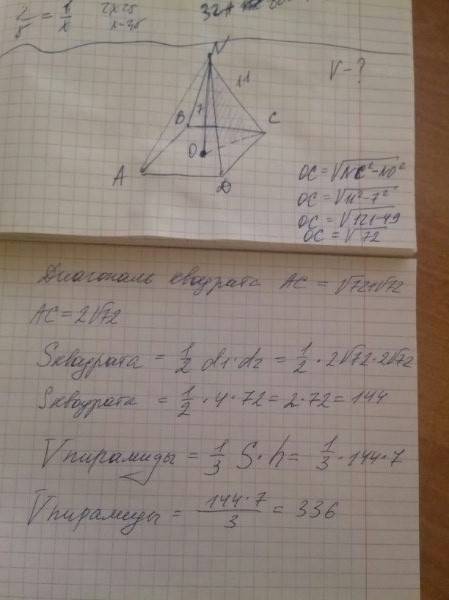 2/5 = 6/x 2x=
N
11
V-?
B 7 C
O
A D
OC=√NC²-NO²
OC=√11²-7²
OC=√121-49
OC=√72
Диагональ квадрата AC = √72+√72
AC=2√72
Sквадрата = 1/2 d1·d2 = 1/2 · 2√72·2√72
Sквадрата = 1/2 · 4 · 72 = 2·72 = 144
Vпирамиды = 1/3 S·h = 1/3 · 144·7
Vпирамиды = 144·7/3 = 336